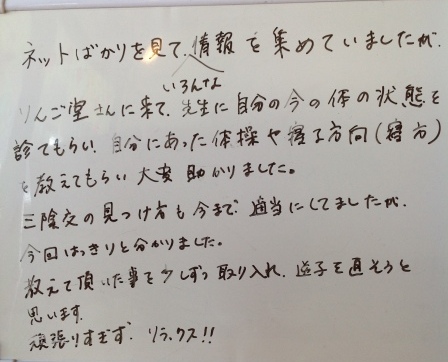 ネットばかりを見て、情報を集めていましたが、
いろんな
りんご堂さんに来て、先生に自分の今の体の状態を
診てもらい、自分にあった体操や寝る方向(寝方)
を教えてもらい大変助かりました。
三陰交の見つけ方も今まで適当にしてましたが、
今回はっきりと分かりました。
教えて頂いた事を少しずつ取り入れ、逆子を直そうと
思います。
頑張りすぎず、リラックス!!